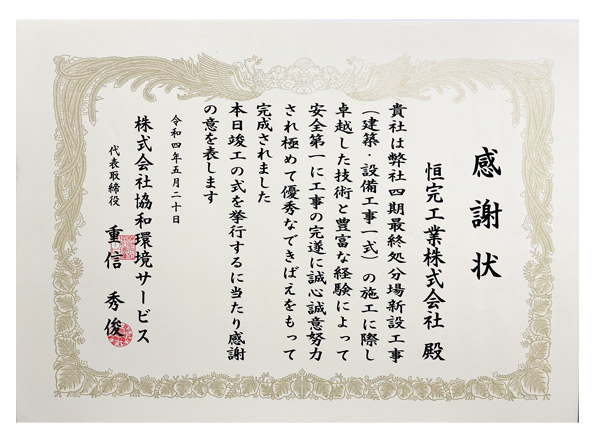 感謝状
恒完工業株式会社 殿
貴社は弊社四期最終処分場新設工事
（建築・設備工事一式）の施工に際し
卓越した技術と豊富な経験によって
安全第一に工事の完遂に誠心誠意努力
され極めて優秀なできばえをもって
完成されました
本日竣工の式を挙行するに当たり感謝
の意を表します
令和四年五月二十日
株式会社協和環境サービス
代表取締役 重信 秀俊